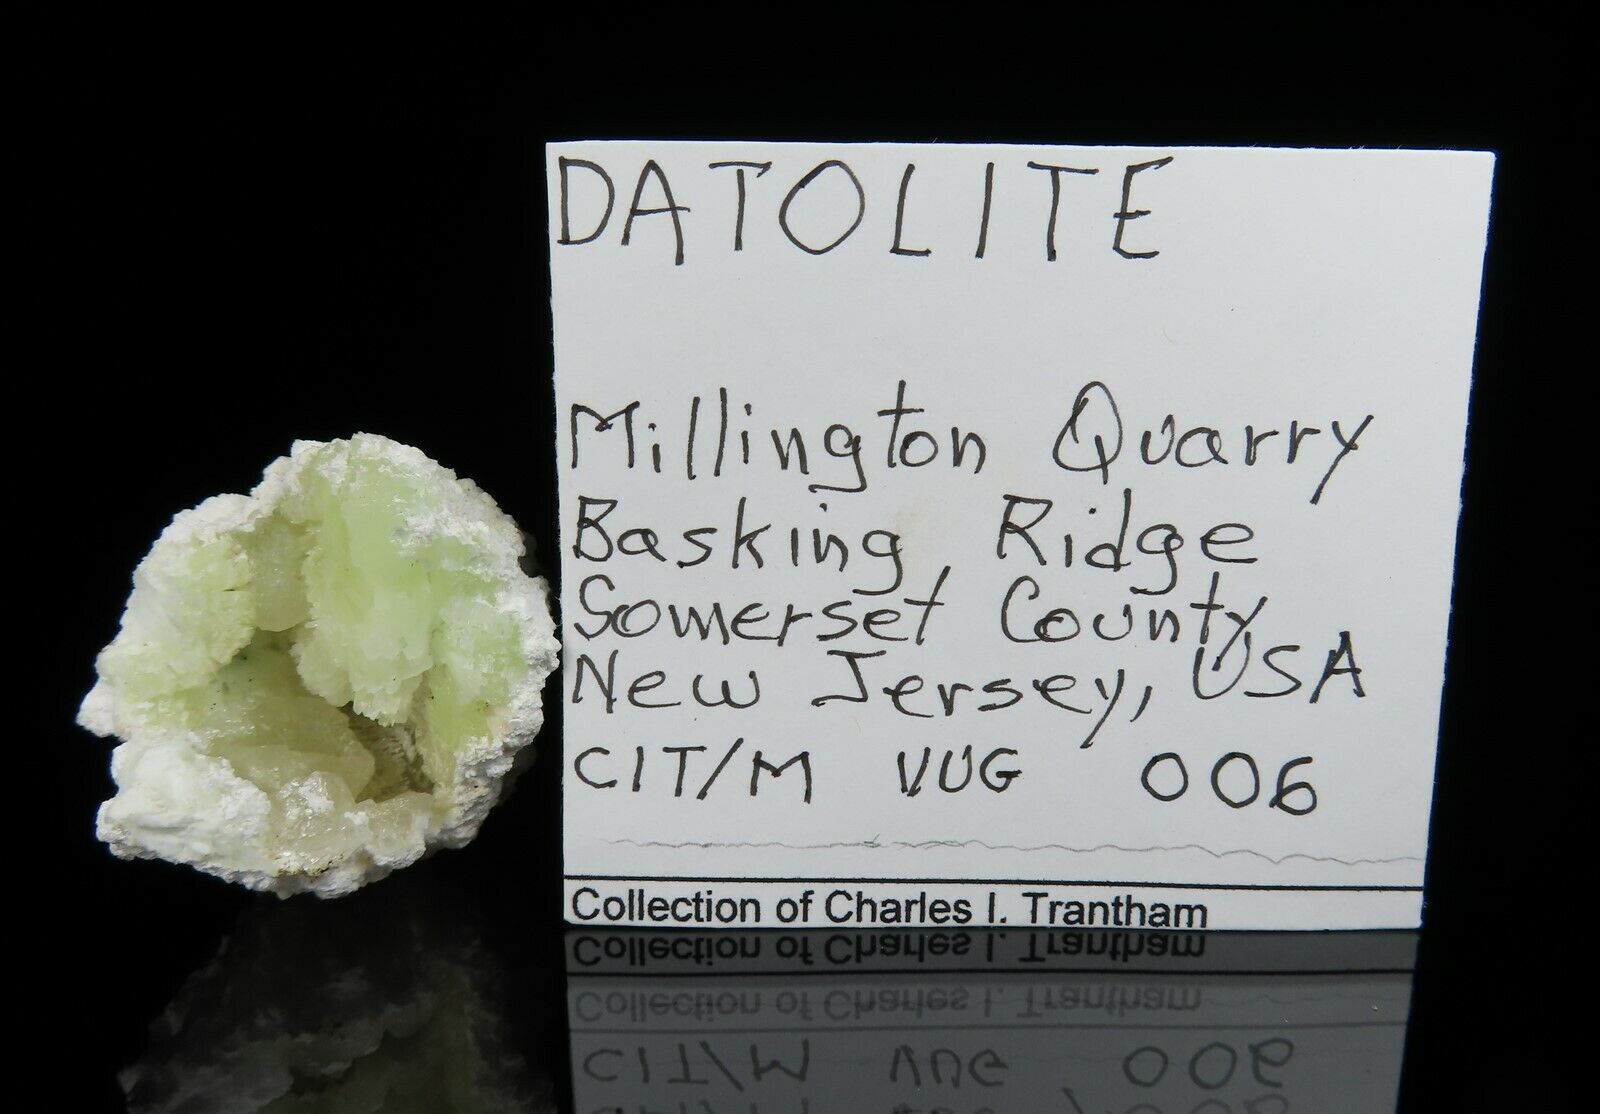 DATOLITE
Millington Quarry
Basking Ridge
Somerset County
New Jersey, USA
CIT/M VUG 006
Collection of Charles I. Trantham